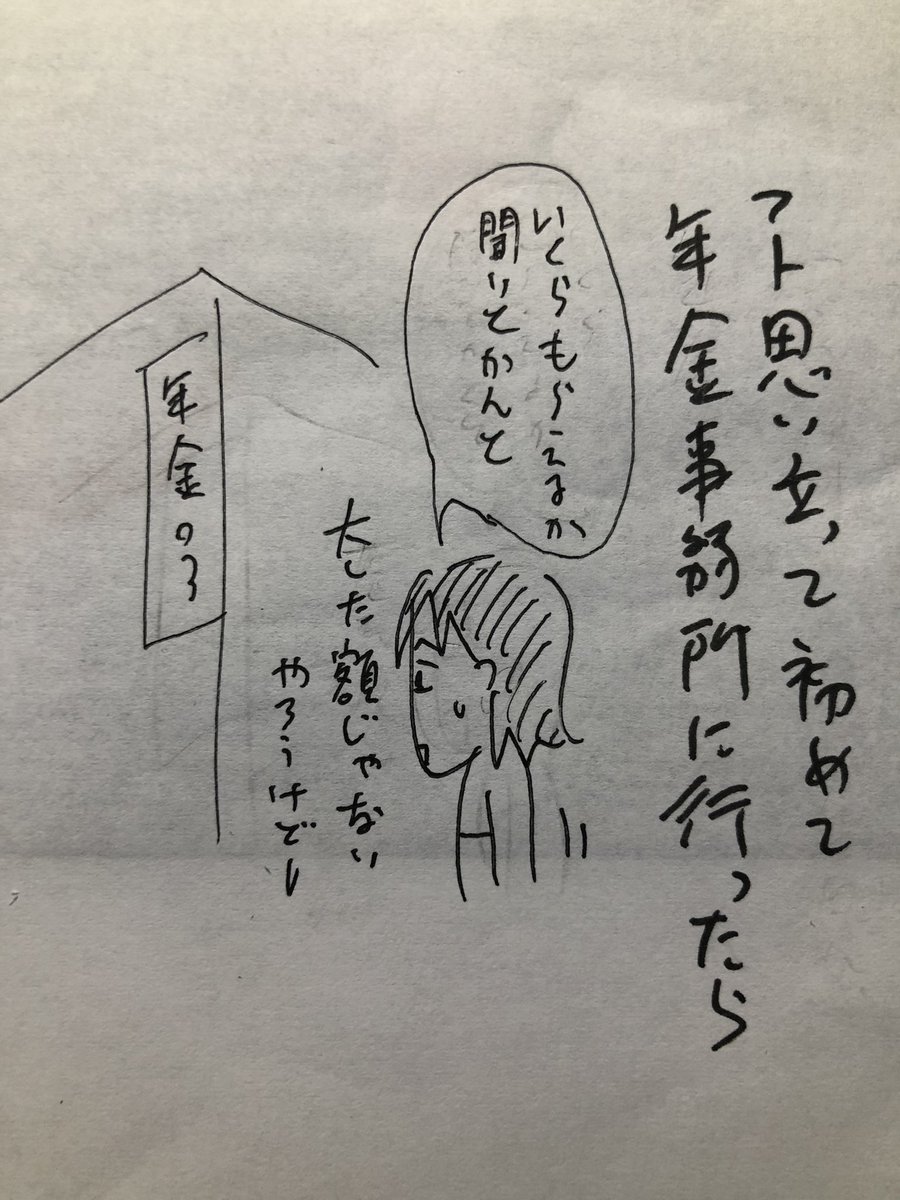 フト思い立って初めて
年金事務所に行ったら
いくらもらえるか
聞いとかんと
大した額じゃない
やろうけどし
年金の